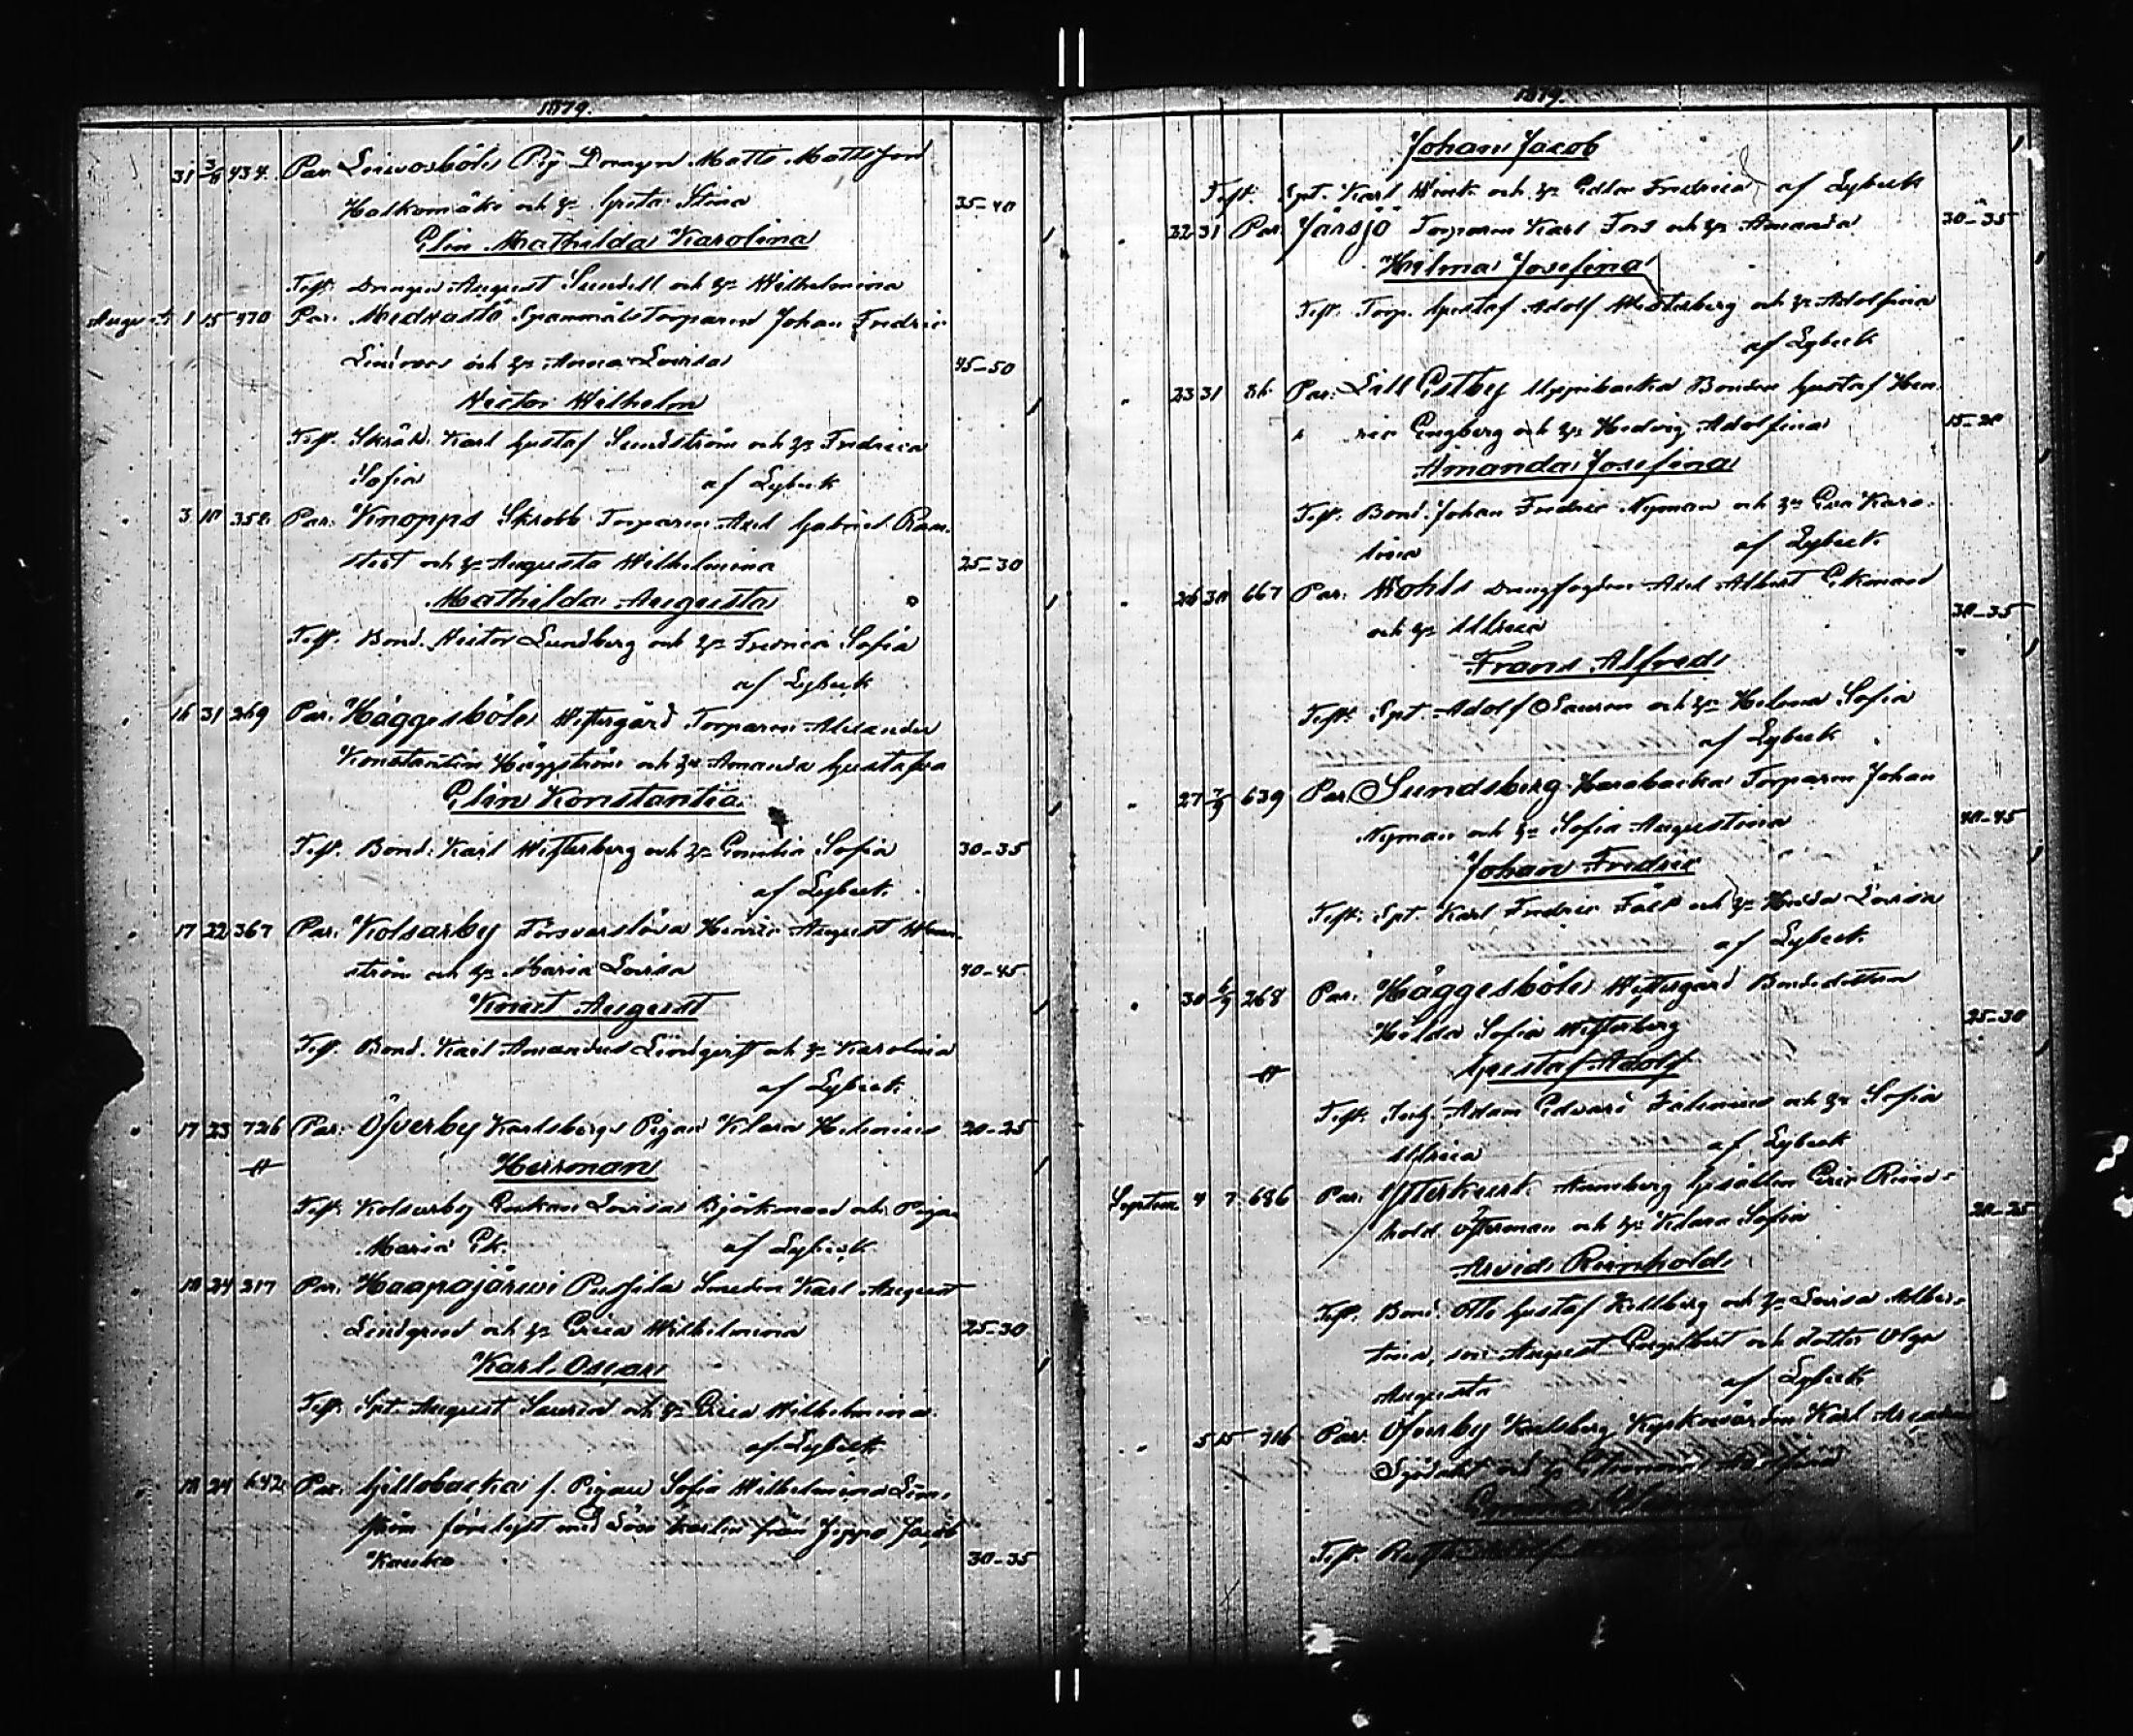 1879.
31 3/8 434. Par. Leivosböle Pig Drengen Matts Mattsson
Halkomäki och h:u Greta Stina 35-40
Elin Mathilda Karolina
Test. Drengen August Sundell och h:u Wilhelmina
Augusti 1 15 470 Par. Medvastö Spannmåls Torparen Johan Fredric
Lindroos och h:u Anna Lovisa 45-50
Hector Wilhelm
Test. Skräd. Karl Gustaf Sundström och h:u Fredrica
Sofia af Lybeck
3 10 358. Par. Knopps Skrobb Torparen Axel Gabriel Ram-
stedt och h:u Augusta Wilhelmina 25-30
Mathilda Augusta
Test. Bond. Hector Lundberg och h:u Fredrica Sofia
af Lybeck
16 31 269 Par. Häggesböle Westergård Torparen Alexander
Konstantin Häggström och h:u Amanda Gustafva
Elin Konstantia
Test. Bond. Karl Westerberg och h:u Emilia Sofia 30-35
af Lybeck.
17 22 367 Par. Kolsarby Försvarslösa Henric August
ström och h:u Maria Lovisa 40-45
Knut August
Test. Bond. Karl Amandus Lindqvist och h:u Karolina
af Lybeck.
17 23 726 Par. Öfverby Karlsbergs Pigan Klara Helenius 20-25
Herman
Test. Kolsarby Enkan Lovisa Björkman och Pigan
Maria Ek. af Lybeck
18 24 217 Par. Haapajärwi Smeden Karl August
Lindqvist och h:u Erica Wilhelmina 25-30
Karl Oscar
Test. Spt. August Saurén och h:u Erica Wilhelmina
af Lybeck
18 24 642 Par. Gillobacka f. Pigan Sofia Wilhelmina Lind-
ström med Lösa karlen från Jeppo Jacob
Kauko 30-35
1879.
Johan Jacob
Test. Spt. Karl och h:u Edla Fredrica af Lybeck
22 31 Par. Järsjö Torparen Karl Fors och h:u Amanda 30-35
Hilma Josefina
Test. Torp. Gustaf Adolf Westerberg och h:u Adolfina
af Lybeck
23 31 86 Par. Lill Estby Uppibacka Bonden Gustaf Hen-
ric Engberg och h:u Hedvig Adolfina 15-20
Amanda Josefina
Test. Bond. Johan Fredric Nyman och h:u Eva Karo-
lina af Lybeck.
26 30 667 Par. Wohls Drengfogden Axel Albert Ekman
och h:u Ulrica 30-35
Frans Alfred
Test. Spt. Adolf Sauren och h:u Helena Sofia
af Lybeck
27 7/9 639 Par. Sundsberg Harabacka Torparen Johan
Nyman och h:u Sofia Augustina 40-45
Johan Fredric
Test. Spt. Karl Fredric Fält och h:u Hedda Lovisa
af Lybeck
30 6/9 268 Par. Häggesböle Westergård Bondedottren
Hilda Sofia Westerberg 25-30
Gustaf Adolf
Test. Adam Edvard Falenius och h:u Sofia
Ulrica af Lybeck
Septem. 4 7 686 Par. Ytterkurk Anneberg Gesällen Eric Rein-
hold Österman och h:u Klara Sofia 20-25
Arvid Reinhold
Test. Bond. Otto Gustaf Kellberg och h:u Lovisa Alber-
tina, son August Engelbert och dotter Olga
Augusta af Lybeck
5 15 716 Par. Öfverby Karlsberg Kyrkovärden Karl
och h:u Adolfina
Emma
Test.